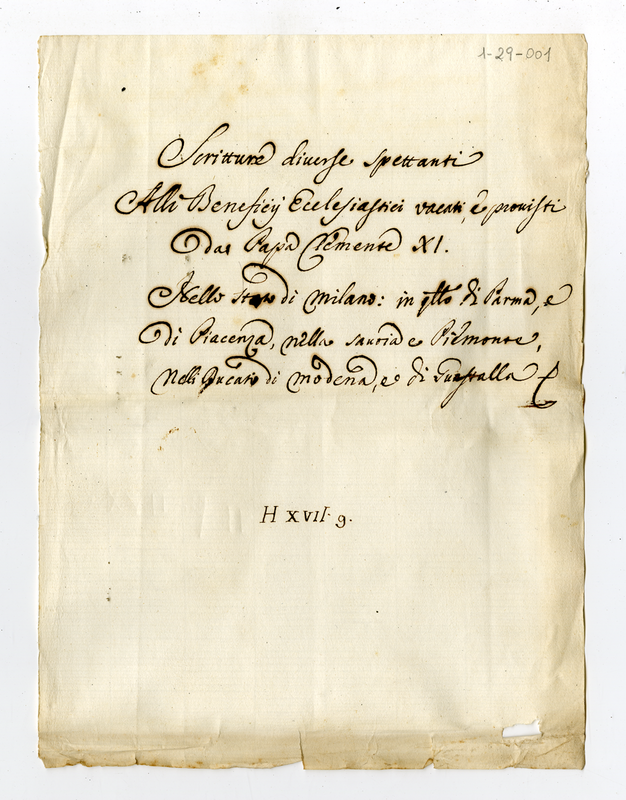 1-29-001
Scritture diverse spettanti
Alli Beneficij Ecclesiastici vacati, e provisti
da Papa Clemente XI.
Nello stato di Milano: in qllo di Parma, e
di Piacenza, nella Savoia e Piemonte,
Nelli Ducato di Modena, e di Guastalla
H XVII. 9.